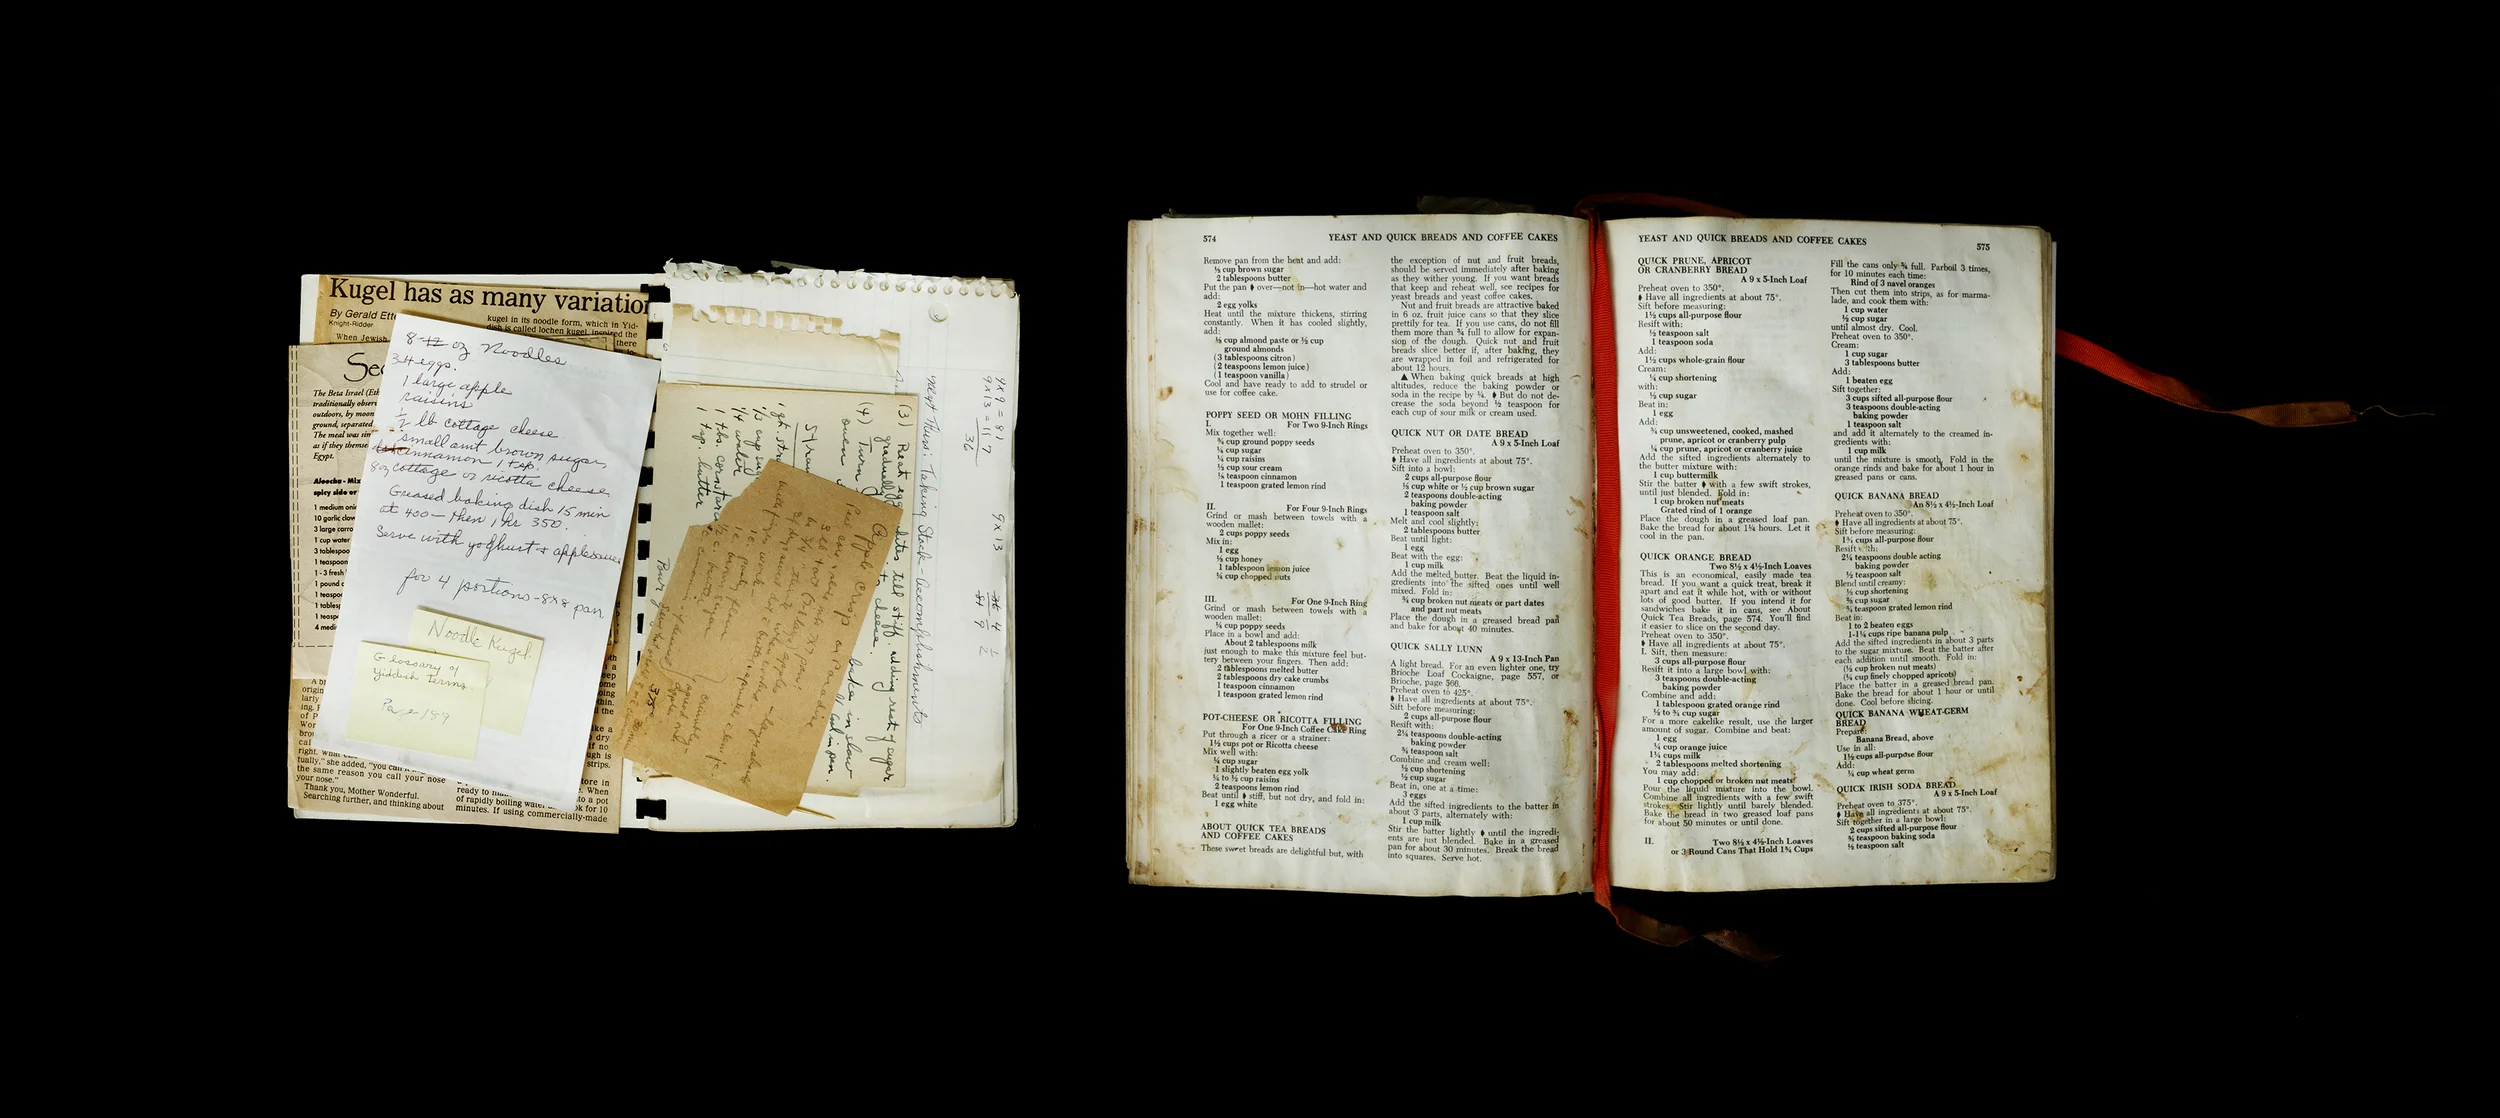 Kugel has as many variation
By Gerald Ette
Knight-Ridder
When Jewish
kugel in its noodle form, which in Yid-
dish is called lochen kugel, inspired the
there
Sec
The Beta Israel (Eth
traditionally observ
outdoors, by moon
ground, separated
The meal was sim
as if they themse
Egypt.
Aleecha - Mix
spicy side or
1 medium onio
10 garlic clow
3 large carro
1 cup water
3 tablespoo
1 teaspoon
1 - 3 fresh
1 pound c
1 teaspoo
1 tablesp
1 teasp
4 medi
8-12 oz Noodles
3-4 eggs.
1 large apple
raisins
1/2 lb cottage cheese
small amt brown sugar
cinnamon 1 tsp.
8 oz cottage or ricotta cheese
Greased baking dish 15 min
at 400 - then 1 hr 350.
Serve with yoghurt + applesauce
for 4 portions - 8x8 pan
Noodle Kugel
Glossary of
Yiddish Terms
Page 189
right. What
tually," she added, "you can
the same reason you call your nose
your nose."
Thank you, Mother Wonderful.
Searching further, and thinking about
ready to
of rapidly boiling water
minutes. If using commercially-made
to a pot
ok for 10
4x9 = 81
9x13 = 117
36
9 x 13
Next Thurs: Taking Stock - Accomplishments
(3) Beat egg whites till stiff, adding rest of sugar
gradually
(4) Turn
oven
1 qt. stra
1/3 cup su
1/4 water
1 tbs. cornstarch
1 tsp. butter
Apple Crisp
574 YEAST AND QUICK BREADS AND COFFEE CAKES
Remove pan from the heat and add:
⅓ cup brown sugar
2 tablespoons butter
Put the pan ♦ over—not in—hot water and
add:
2 egg yolks
Heat until the mixture thickens, stirring
constantly. When it has cooled slightly,
add:
⅓ cup almond paste or ½ cup
ground almonds
(3 tablespoons citron)
(2 teaspoons lemon juice)
(1 teaspoon vanilla)
Cool and have ready to add to strudel or
use for coffee cake.
POPPY SEED OR MOHN FILLING
I. For Two 9-Inch Rings
Mix together well:
¾ cup ground poppy seeds
¼ cup sugar
¼ cup raisins
½ cup sour cream
⅛ teaspoon cinnamon
1 teaspoon grated lemon rind
II. For Four 9-Inch Rings
Grind or mash between towels with a
wooden mallet:
2 cups poppy seeds
Mix in:
1 egg
⅓ cup honey
1 tablespoon lemon juice
¼ cup chopped nuts
III. For One 9-Inch Ring
Grind or mash between towels with a
wooden mallet:
¼ cup poppy seeds
Place in a bowl and add:
About 2 tablespoons milk
just enough to make this mixture feel but-
tery between your fingers. Then add:
2 tablespoons melted butter
2 tablespoons dry cake crumbs
1 teaspoon cinnamon
1 teaspoon grated lemon rind
POT-CHEESE OR RICOTTA FILLING
For One 9-Inch Coffee Cake Ring
Put through a ricer or a strainer:
1½ cups pot or Ricotta cheese
Mix well with:
¼ cup sugar
1 slightly beaten egg yolk
¼ to ½ cup raisins
2 teaspoons lemon rind
Beat until ♦ stiff, but not dry, and fold in:
1 egg white
ABOUT QUICK TEA BREADS
AND COFFEE CAKES
These sweet breads are delightful but, with
the exception of nut and fruit breads,
should be served immediately after baking
as they wither young. If you want breads
that keep and reheat well, see recipes for
yeast breads and yeast coffee cakes.
Nut and fruit breads are attractive baked
in 6 oz. fruit juice cans so that they slice
prettily for tea. If you use cans, do not fill
them more than ¾ full to allow for expan-
sion of the dough. Quick nut and fruit
breads slice better if, after baking, they
are wrapped in foil and refrigerated for
about 12 hours.
▲ When baking quick breads at high
altitudes, reduce the baking powder or
soda in the recipe by ¼. ♦ But do not de-
crease the soda beyond ½ teaspoon for
each cup of sour milk or cream used.
QUICK NUT OR DATE BREAD
A 9 x 5-Inch Loaf
Preheat oven to 350°.
♦ Have all ingredients at about 75°.
Sift into a bowl:
2 cups all-purpose flour
⅓ cup white or ½ cup brown sugar
2 teaspoons double-acting
baking powder
1 teaspoon salt
Melt and cool slightly:
2 tablespoons butter
Beat until light:
1 egg
Beat with the egg:
1 cup milk
Add the melted butter. Beat the liquid in-
gredients into the sifted ones until well
mixed. Fold in:
¾ cup broken nut meats or part dates
and part nut meats
Place the dough in a greased bread pan
and bake for about 40 minutes.
QUICK SALLY LUNN
A 9 x 13-Inch Pan
A light bread. For an even lighter one, try
Brioche Loaf Cockaigne, page 557, or
Brioche, page 566.
Preheat oven to 425°.
♦ Have all ingredients at about 75°.
Sift before measuring:
2 cups all-purpose flour
Resift with:
2¼ teaspoons double-acting
baking powder
¾ teaspoon salt
Combine and cream well:
½ cup shortening
½ cup sugar
Beat in, one at a time:
3 eggs
Add the sifted ingredients to the batter in
about 3 parts, alternately with:
1 cup milk
Stir the batter lightly ♦ until the ingredi-
ents are just blended. Bake in a greased
pan for about 30 minutes. Break the bread
into squares. Serve hot.
YEAST AND QUICK BREADS AND COFFEE CAKES 575
QUICK PRUNE, APRICOT
OR CRANBERRY BREAD
A 9 x 5-Inch Loaf
Preheat oven to 350°.
♦ Have all ingredients at about 75°.
Sift before measuring:
1½ cups all-purpose flour
Resift with:
½ teaspoon salt
1 teaspoon soda
Add:
1½ cups whole-grain flour
Cream:
¼ cup shortening
with:
½ cup sugar
Beat in:
1 egg
Add:
¾ cup unsweetened, cooked, mashed
prune, apricot or cranberry pulp
¼ cup prune, apricot or cranberry juice
Add the sifted ingredients alternately to
the butter mixture with:
1 cup buttermilk
Stir the batter ♦ with a few swift strokes,
until just blended. Fold in:
1 cup broken nut meats
Grated rind of 1 orange
Place the dough in a greased loaf pan.
Bake the bread for about 1¼ hours. Let it
cool in the pan.
QUICK ORANGE BREAD
Two 8½ x 4½-Inch Loaves
This is an economical, easily made tea
bread. If you want a quick treat, break it
apart and eat it while hot, with or without
lots of good butter. If you intend it for
sandwiches bake it in cans, see About
Quick Tea Breads, page 574. You'll find
it easier to slice on the second day.
Preheat oven to 350°.
♦ Have all ingredients at about 75°.
I. Sift, then measure:
3 cups all-purpose flour
Resift it into a large bowl with:
3 teaspoons double-acting
baking powder
Combine and add:
1 tablespoon grated orange rind
½ to ¾ cup sugar
For a more cakelike result, use the larger
amount of sugar. Combine and beat:
1 egg
¼ cup orange juice
1¼ cups milk
2 tablespoons melted shortening
You may add:
1 cup chopped or broken nut meats
Pour the liquid mixture into the bowl.
Combine all ingredients with a few swift
strokes. Stir lightly until barely blended.
Bake the bread in two greased loaf pans
for about 50 minutes or until done.
II. Two 8½ x 4½-Inch Loaves
or 3 Round Cans That Hold 1¾ Cups
Fill the cans only ¾ full. Parboil 3 times,
for 10 minutes each time:
Rind of 3 navel oranges
Then cut them into strips, as for marma-
lade, and cook them with:
1 cup water
½ cup sugar
until almost dry. Cool.
Preheat oven to 350°.
Cream:
1 cup sugar
3 tablespoons butter
Add:
1 beaten egg
Sift together:
3 cups sifted all-purpose flour
3 teaspoons double-acting
baking powder
1 teaspoon salt
and add it alternately to the creamed in-
gredients with:
1 cup milk
until the mixture is smooth. Fold in the
orange rinds and bake for about 1 hour in
greased pans or cans.
QUICK BANANA BREAD
An 8½ x 4½-Inch Loaf
Preheat oven to 350°.
♦ Have all ingredients at about 75°.
Sift before measuring:
1¾ cups all-purpose flour
Resift with:
2¼ teaspoons double acting
baking powder
½ teaspoon salt
Blend until creamy:
⅓ cup shortening
⅔ cup sugar
¾ teaspoon grated lemon rind
Beat in:
1 to 2 beaten eggs
1-1¼ cups ripe banana pulp
Add the sifted ingredients in about 3 parts
to the sugar mixture. Beat the batter after
each addition until smooth. Fold in:
(½ cup broken nut meats)
(¼ cup finely chopped apricots)
Place the batter in a greased bread pan.
Bake the bread for about 1 hour or until
done. Cool before slicing.
QUICK BANANA WHEAT-GERM
BREAD
Prepare:
Banana Bread, above
Use in all:
1½ cups all-purpose flour
Add:
¼ cup wheat germ
QUICK IRISH SODA BREAD
A 9 x 5-Inch Loaf
Preheat oven to 375°.
♦ Have all ingredients at about 75°.
Sift together in a large bowl:
2 cups sifted all-purpose flour
¾ teaspoon baking soda
½ teaspoon salt